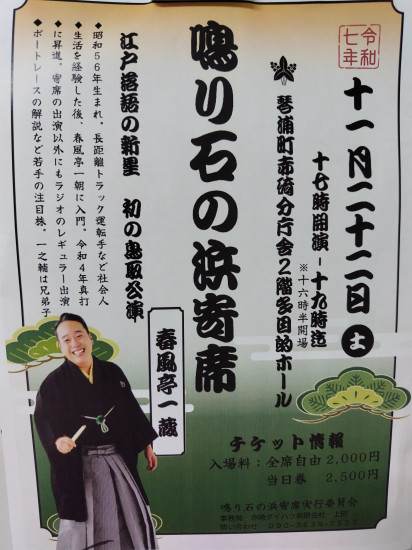 令和七年
十一月二十二日(土)
十七時開演-十九時迄
※十六時半開場
琴浦町赤碕分庁舎2階多目的ホール
鳴り石の浜寄席
江戸落語の新星 初の鳥取公演
◆昭和56年生まれ。長距離トラック運転手など社会人
◆生活を経験した後、春風亭一朝に入門。令和4年真打
◆に昇進。寄席の出演以外にもラジオのレギュラー出演
◆ボートレースの解説など若手の注目株。一之輔は兄弟子
春風亭一蔵
チケット情報
入場料:全席自由 2,000円
当日券 2,500円
鳴り石の浜寄席実行委員会